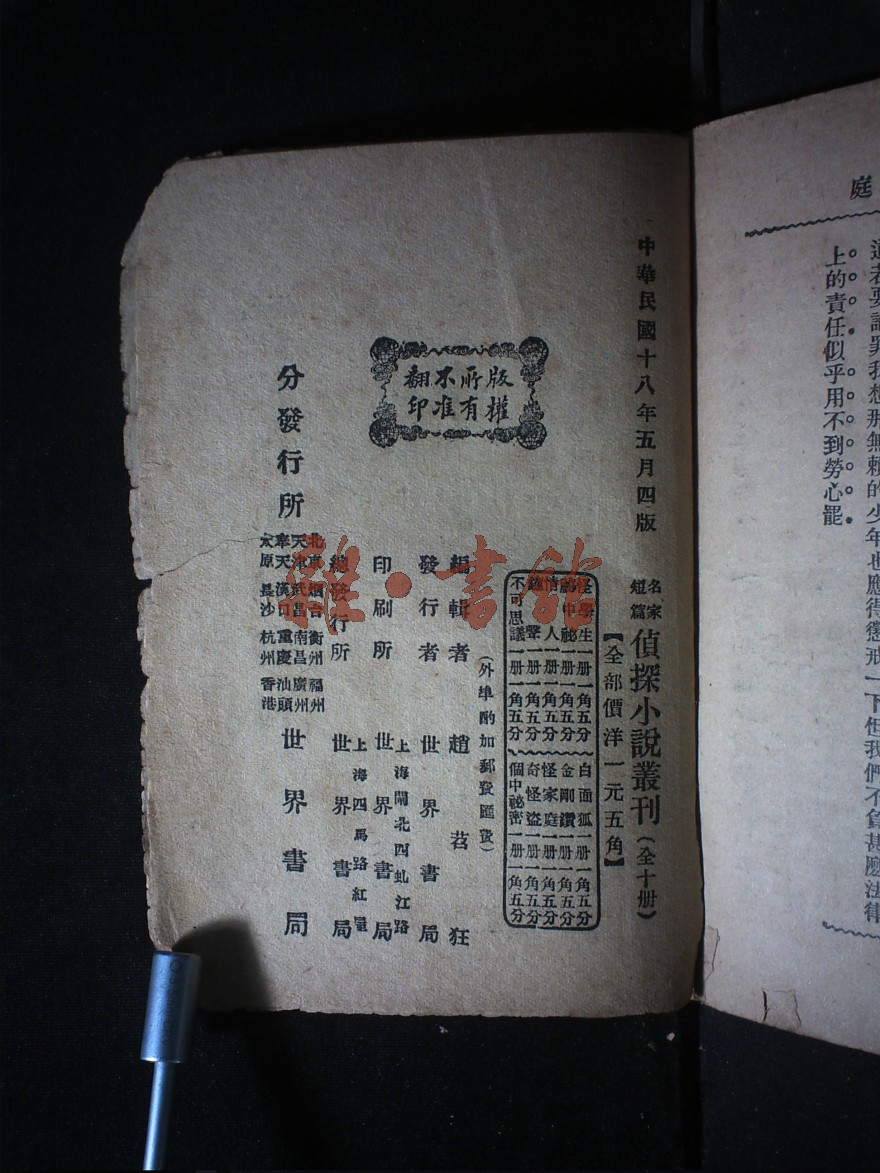 庭
上的責任似乎用不到勞心罷
中華民國十八年五月四版
名家短篇 偵探小說叢刊（全十册）
【全部價洋一元五角】
怪學生 一册 一角五分 白面狐 一册 一角五分
中祕 一册 一角五分 金剛鑽 一册 一角五分
情人 一册 一角五分 怪家庭 一册 一角五分
聲 一册 一角五分 奇怪盜 一册 一角五分
不可思議 一册 一角五分 個中祕密 一册 一角五分
（外埠酌加郵費匯費）
版權所有
翻印不准
編輯者 趙苕狂
發行者 世界書局
上海閘北四虬江路
印刷所 世界書局
上海四馬路紅屋
總發行所 世界書局
分發行所
北京 烟台 衡州 福州
天津 武昌 南昌 廣州
奉天 漢口 重慶 汕頭
太原 長沙 杭州 香港
世界書局
雜·書館